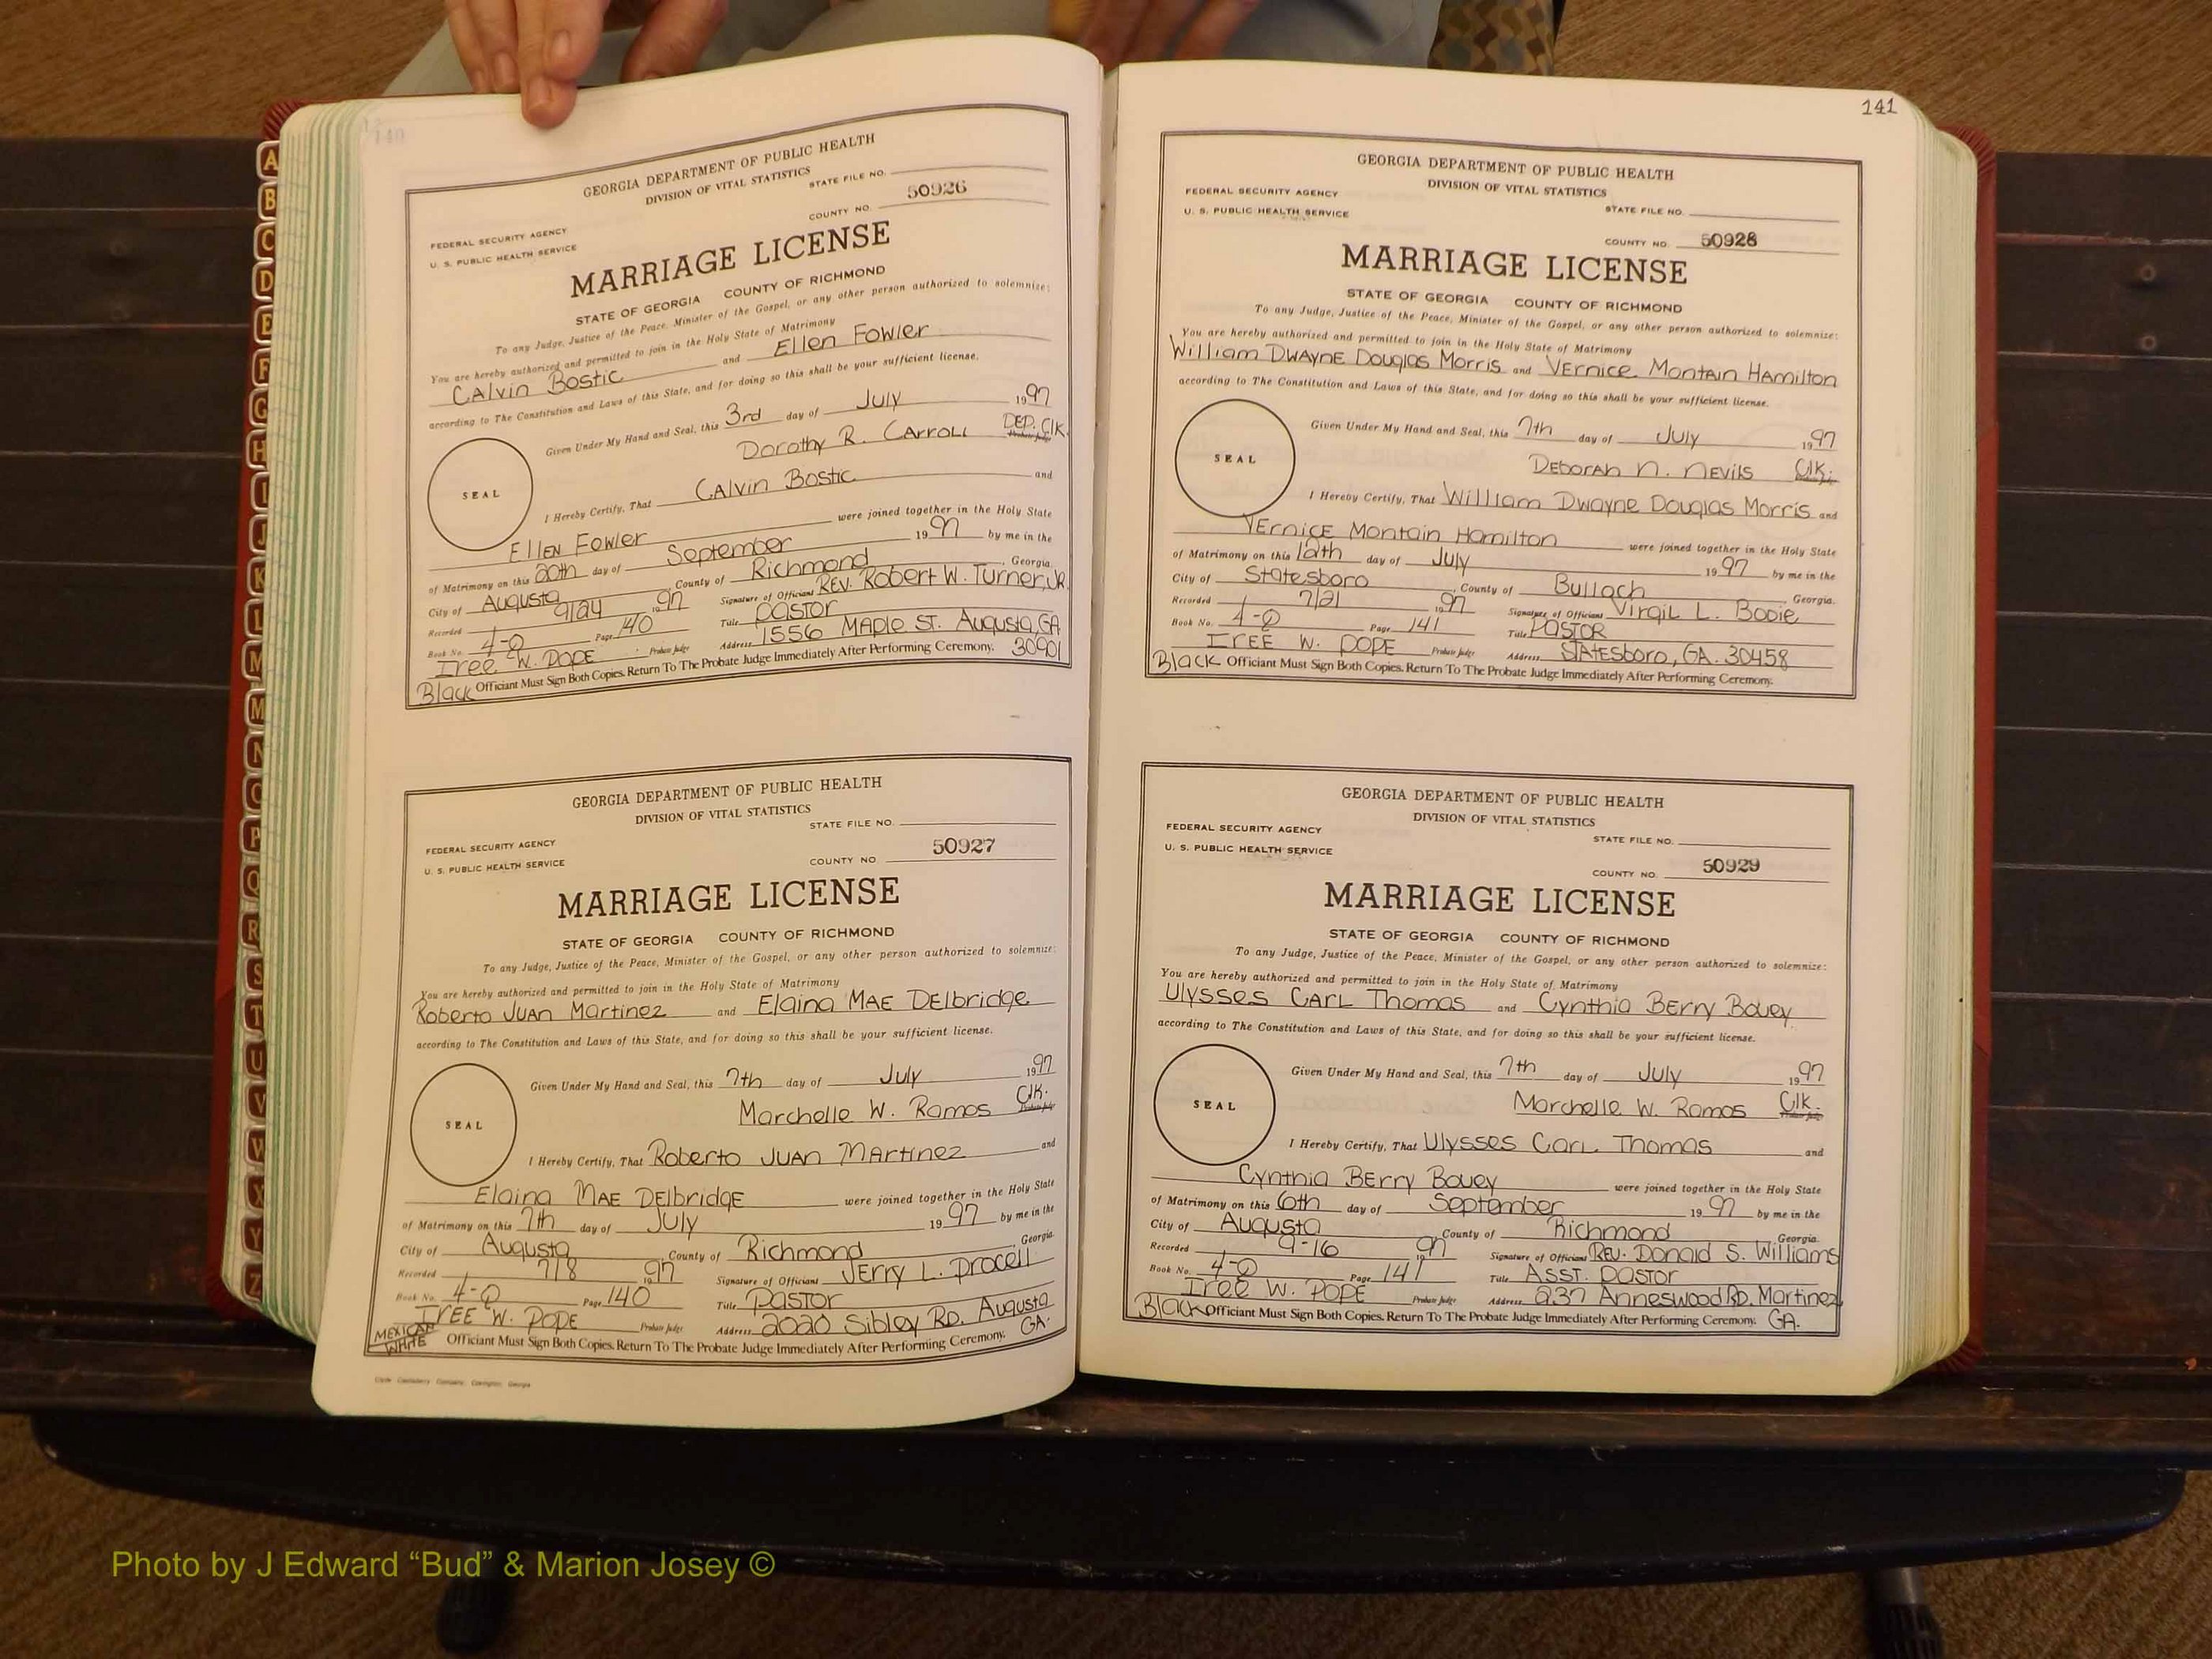 141
GEORGIA DEPARTMENT OF PUBLIC HEALTH
DIVISION OF VITAL STATISTICS
STATE FILE NO.
FEDERAL SECURITY AGENCY
U. S. PUBLIC HEALTH SERVICE
COUNTY NO. 50926
MARRIAGE LICENSE
STATE OF GEORGIA COUNTY OF RICHMOND
To any Judge, Justice of the Peace, Minister of the Gospel, or any other person authorized to solemnize:
You are hereby authorized and permitted to join in the Holy State of Matrimony
Calvin Bostic and Ellen Fowler
according to The Constitution and Laws of this State, and for doing so this shall be your sufficient license.
Given Under My Hand and Seal, this 3rd day of July 1997
Dorothy R. Carroll DEP. Clk.
SEAL
I Hereby Certify, That Calvin Bostic and
Ellen Fowler were joined together in the Holy State
of Matrimony on this 20th day of September 1997 by me in the
City of Augusta County of Richmond, Georgia.
Recorded 9/24 1997 Signature of Officiant REV. Robert W. Turner, JR.
Book No. 4-Q Page 140 Title Pastor
Iree W. Pope Probate Judge Address 1556 Maple ST. Augusta, GA
Black Officiant Must Sign Both Copies. Return To The Probate Judge Immediately After Performing Ceremony. 30901
GEORGIA DEPARTMENT OF PUBLIC HEALTH
DIVISION OF VITAL STATISTICS
STATE FILE NO.
FEDERAL SECURITY AGENCY
U. S. PUBLIC HEALTH SERVICE
COUNTY NO 50927
MARRIAGE LICENSE
STATE OF GEORGIA COUNTY OF RICHMOND
To any Judge, Justice of the Peace, Minister of the Gospel, or any other person authorized to solemnize:
You are hereby authorized and permitted to join in the Holy State of Matrimony
Roberto Juan Martinez and Elaina Mae Delbridge
according to The Constitution and Laws of this State, and for doing so this shall be your sufficient license.
Given Under My Hand and Seal, this 7th day of July 1997
Marchelle W. Ramos Clk.
SEAL
I Hereby Certify, That Roberto Juan Martinez and
Elaina Mae Delbridge were joined together in the Holy State
of Matrimony on this 7th day of July 1997 by me in the
City of Augusta, County of Richmond, Georgia.
Recorded 7/8 1997 Signature of Officiant Jerry L. Procell
Book No. 4-Q Page 140 Title Pastor
Iree W. Pope Probate Judge Address 2020 Sibley RD. Augusta
MEXICAN WHITE Officiant Must Sign Both Copies. Return To The Probate Judge Immediately After Performing Ceremony. GA.
GEORGIA DEPARTMENT OF PUBLIC HEALTH
DIVISION OF VITAL STATISTICS
FEDERAL SECURITY AGENCY
U. S. PUBLIC HEALTH SERVICE
STATE FILE NO.
COUNTY NO. 50928
MARRIAGE LICENSE
STATE OF GEORGIA COUNTY OF RICHMOND
To any Judge, Justice of the Peace, Minister of the Gospel, or any other person authorized to solemnize:
You are hereby authorized and permitted to join in the Holy State of Matrimony
William Dwayne Douglas Morris and Vernice Montain Hamilton
according to The Constitution and Laws of this State, and for doing so this shall be your sufficient license.
Given Under My Hand and Seal, this 7th day of July 1997
Deborah N. Nevils Clk.
SEAL
I Hereby Certify, That William Dwayne Douglas Morris and
Vernice Montain Hamilton were joined together in the Holy State
of Matrimony on this 12th day of July 1997 by me in the
City of Statesboro, County of Bulloch Georgia.
Recorded 7/21 1997 Signature of Officiant Virgil L. Bodie
Book No. 4-Q Page 141 Title Pastor
Iree W. Pope Probate Judge Address Statesboro, GA. 30458
Black Officiant Must Sign Both Copies. Return To The Probate Judge Immediately After Performing Ceremony.
GEORGIA DEPARTMENT OF PUBLIC HEALTH
DIVISION OF VITAL STATISTICS
FEDERAL SECURITY AGENCY
U. S. PUBLIC HEALTH SERVICE
STATE FILE NO.
COUNTY NO. 50929
MARRIAGE LICENSE
STATE OF GEORGIA COUNTY OF RICHMOND
To any Judge, Justice of the Peace, Minister of the Gospel, or any other person authorized to solemnize:
You are hereby authorized and permitted to join in the Holy State of Matrimony
Ulysses Carl Thomas and Cynthia Berry Bovey
according to The Constitution and Laws of this State, and for doing so this shall be your sufficient license.
Given Under My Hand and Seal, this 7th day of July 1997
Marchelle W. Ramos Clk.
SEAL
I Hereby Certify, That Ulysses Carl Thomas and
Cynthia Berry Bovey were joined together in the Holy State
of Matrimony on this 6th day of September 1997 by me in the
City of Augusta, County of Richmond Georgia.
Recorded 9-16 1997 Signature of Officiant REV. Donald S. Williams
Book No. 4-Q Page 141 Title Asst. Pastor
Iree W. Pope Probate Judge Address 237 Anneswood RD. Martinez,
Black Officiant Must Sign Both Copies. Return To The Probate Judge Immediately After Performing Ceremony. GA.
A
B
C
D
E
F
G
H
I
J
K
L
M
M
N
O
P
Q
R
S
T
U
V
W
X
Y
Z
Photo by J Edward “Bud” & Marion Josey ©